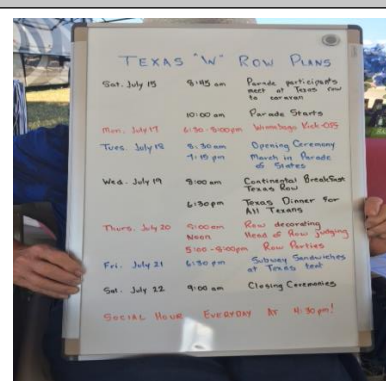 TEXAS "W" ROW PLANS
Sat. July 15 8:45 am Parade participants
meet at Texas row
to caravan
10:00 am Parade Starts
Mon. July 17 6:30-8:00pm Winnebago Kick-Off
Tues. July 18 8:30am Opening Ceremony
7:15 pm March in Parade
of States
Wed. July 19 8:00am Continental Breakfast
Texas Row
6:30pm Texas Dinner for
All Texans
Thurs. July 20 Row decorating
Noon Head of Row judging
5:00-8:00pm Row Parties
Fri. July 21 6:30pm Subway Sandwiches
at Texas tent
Sat. July 22 9:00am Closing Ceremonies
SOCIAL HOUR EVERYDAY AT 4:30pm!